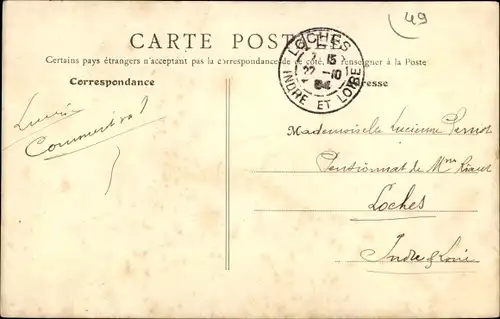 49
CARTE POSTALE
Certains pays étrangers n'acceptant pas la correspondance de ce côté, se renseigner à la Poste
Correspondance
Adresse
LOCHES
15
22 - 10
INDRE ET LOIRE
Mademoiselle Lucienne
Pensionnat de Mme
Loches
Indre & Loire